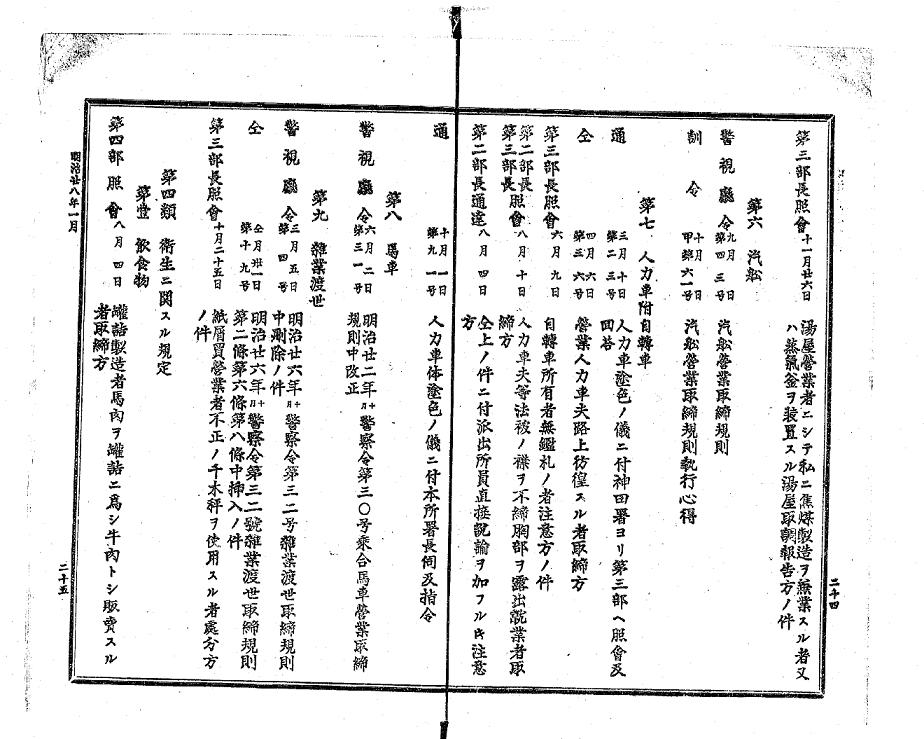 第三部長照會 十一月廿六日 湯屋營業者ニシテ私ニ焦煤製造ヲ兼業スル者又
ハ蒸氣釜ヲ装置スル湯屋取調報告方ノ件
第六 汽舩
警視廳令 九月 日 第四三号 汽舩營業取締規則
訓令 十月 日 甲第六一号 汽舩營業取締規則執行心得
第七 人力車附自轉車
通 三月十日 第二三号 人力車塗色ノ儀ニ付神田署ヨリ第三部ヘ照會及
回答
仝 四月六日 第三六号 營業人力車夫路上彷徨スル者取締方
第三部長照會 六月九日 自轉車所有者無鑑札ノ者注意方ノ件
第二部長
第三部長照會 八月十日 人力車夫等法被ノ襟ヲ不締胸部ヲ露出就業者取
締方
第二部長通達 八月四日 仝上ノ件ニ付派出所員直接説諭ヲ加フルキ注意
方
二十四
通 十月一日 第九一号 人力車体塗色ノ儀ニ付本所署長伺及指令
第八 馬車
警視廳令 六月二日 第三一号 明治廿二年十月警察令第三〇号乘合馬車營業取締
規則中改正
第九 雜業渡世
警視廳令 三月五日 第四号 明治廿六年十月警察令第三二号雜業渡世取締規則
中刪除ノ件
仝 仝月卅一日 第十九号 明治廿六年十月警察令第三二號雜業渡世取締規則
第二條第六條第八條中挿入ノ件
第三部長照會 十月二十五日 紙屑買營業者不正ノ千木秤ヲ使用スル者處分方
ノ件
第四類 衛生ニ関スル規定
第壹 飲食物
第四部照會 八月四日 罐詰製造者馬肉ヲ罐詰ニ爲シ牛肉トシ販賣スル
者取締方
明治廿八年一月
二十五